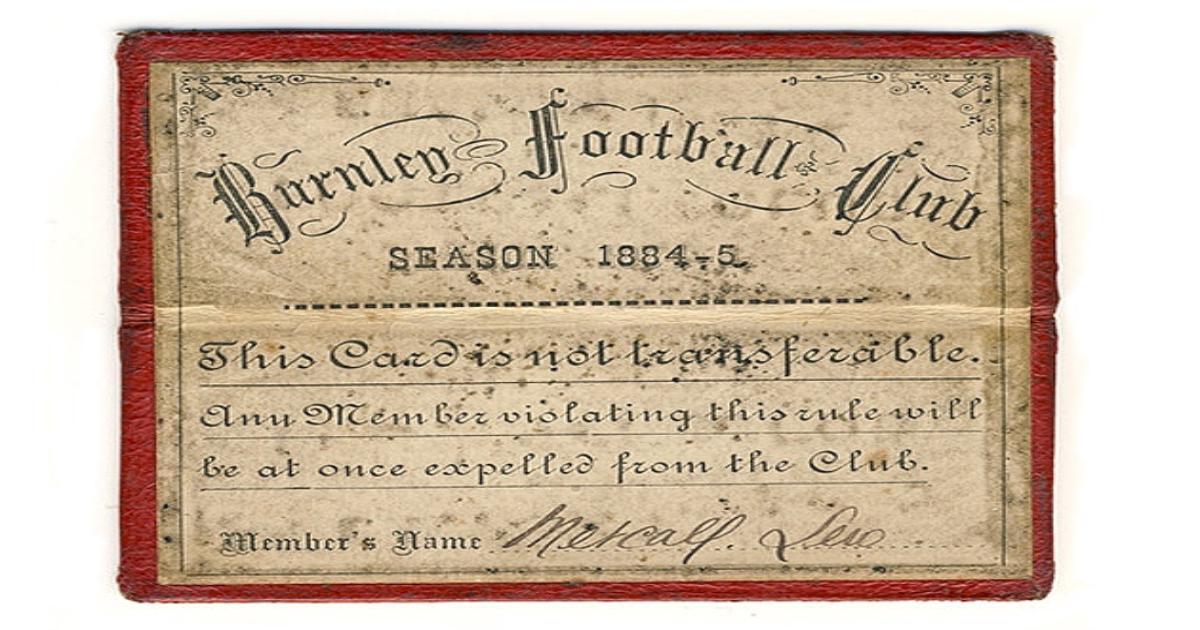 Burnley Football Club
SEASON 1884-5
This Card is not transferable.
Any Member violating this rule will
be at once expelled from the Club.
Member's Name Metcalf